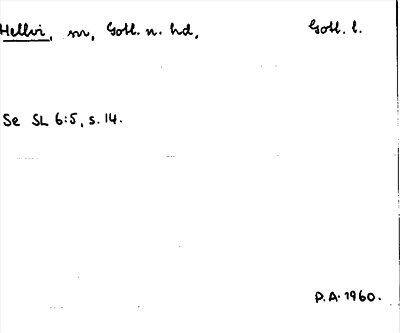 Hellvi, sn, Gotl. n. hd, Gotl. l.
Se SL 6:5, s. 14.
P.A. 1960.